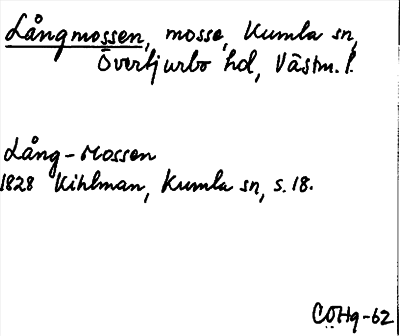 Långmossen, mosse, Kumla sn,
Övertjurbo hd, Västm. l.
Lång-Mossen
1828 Kihlman, Kumla sn, s. 18.
CÖHg-62